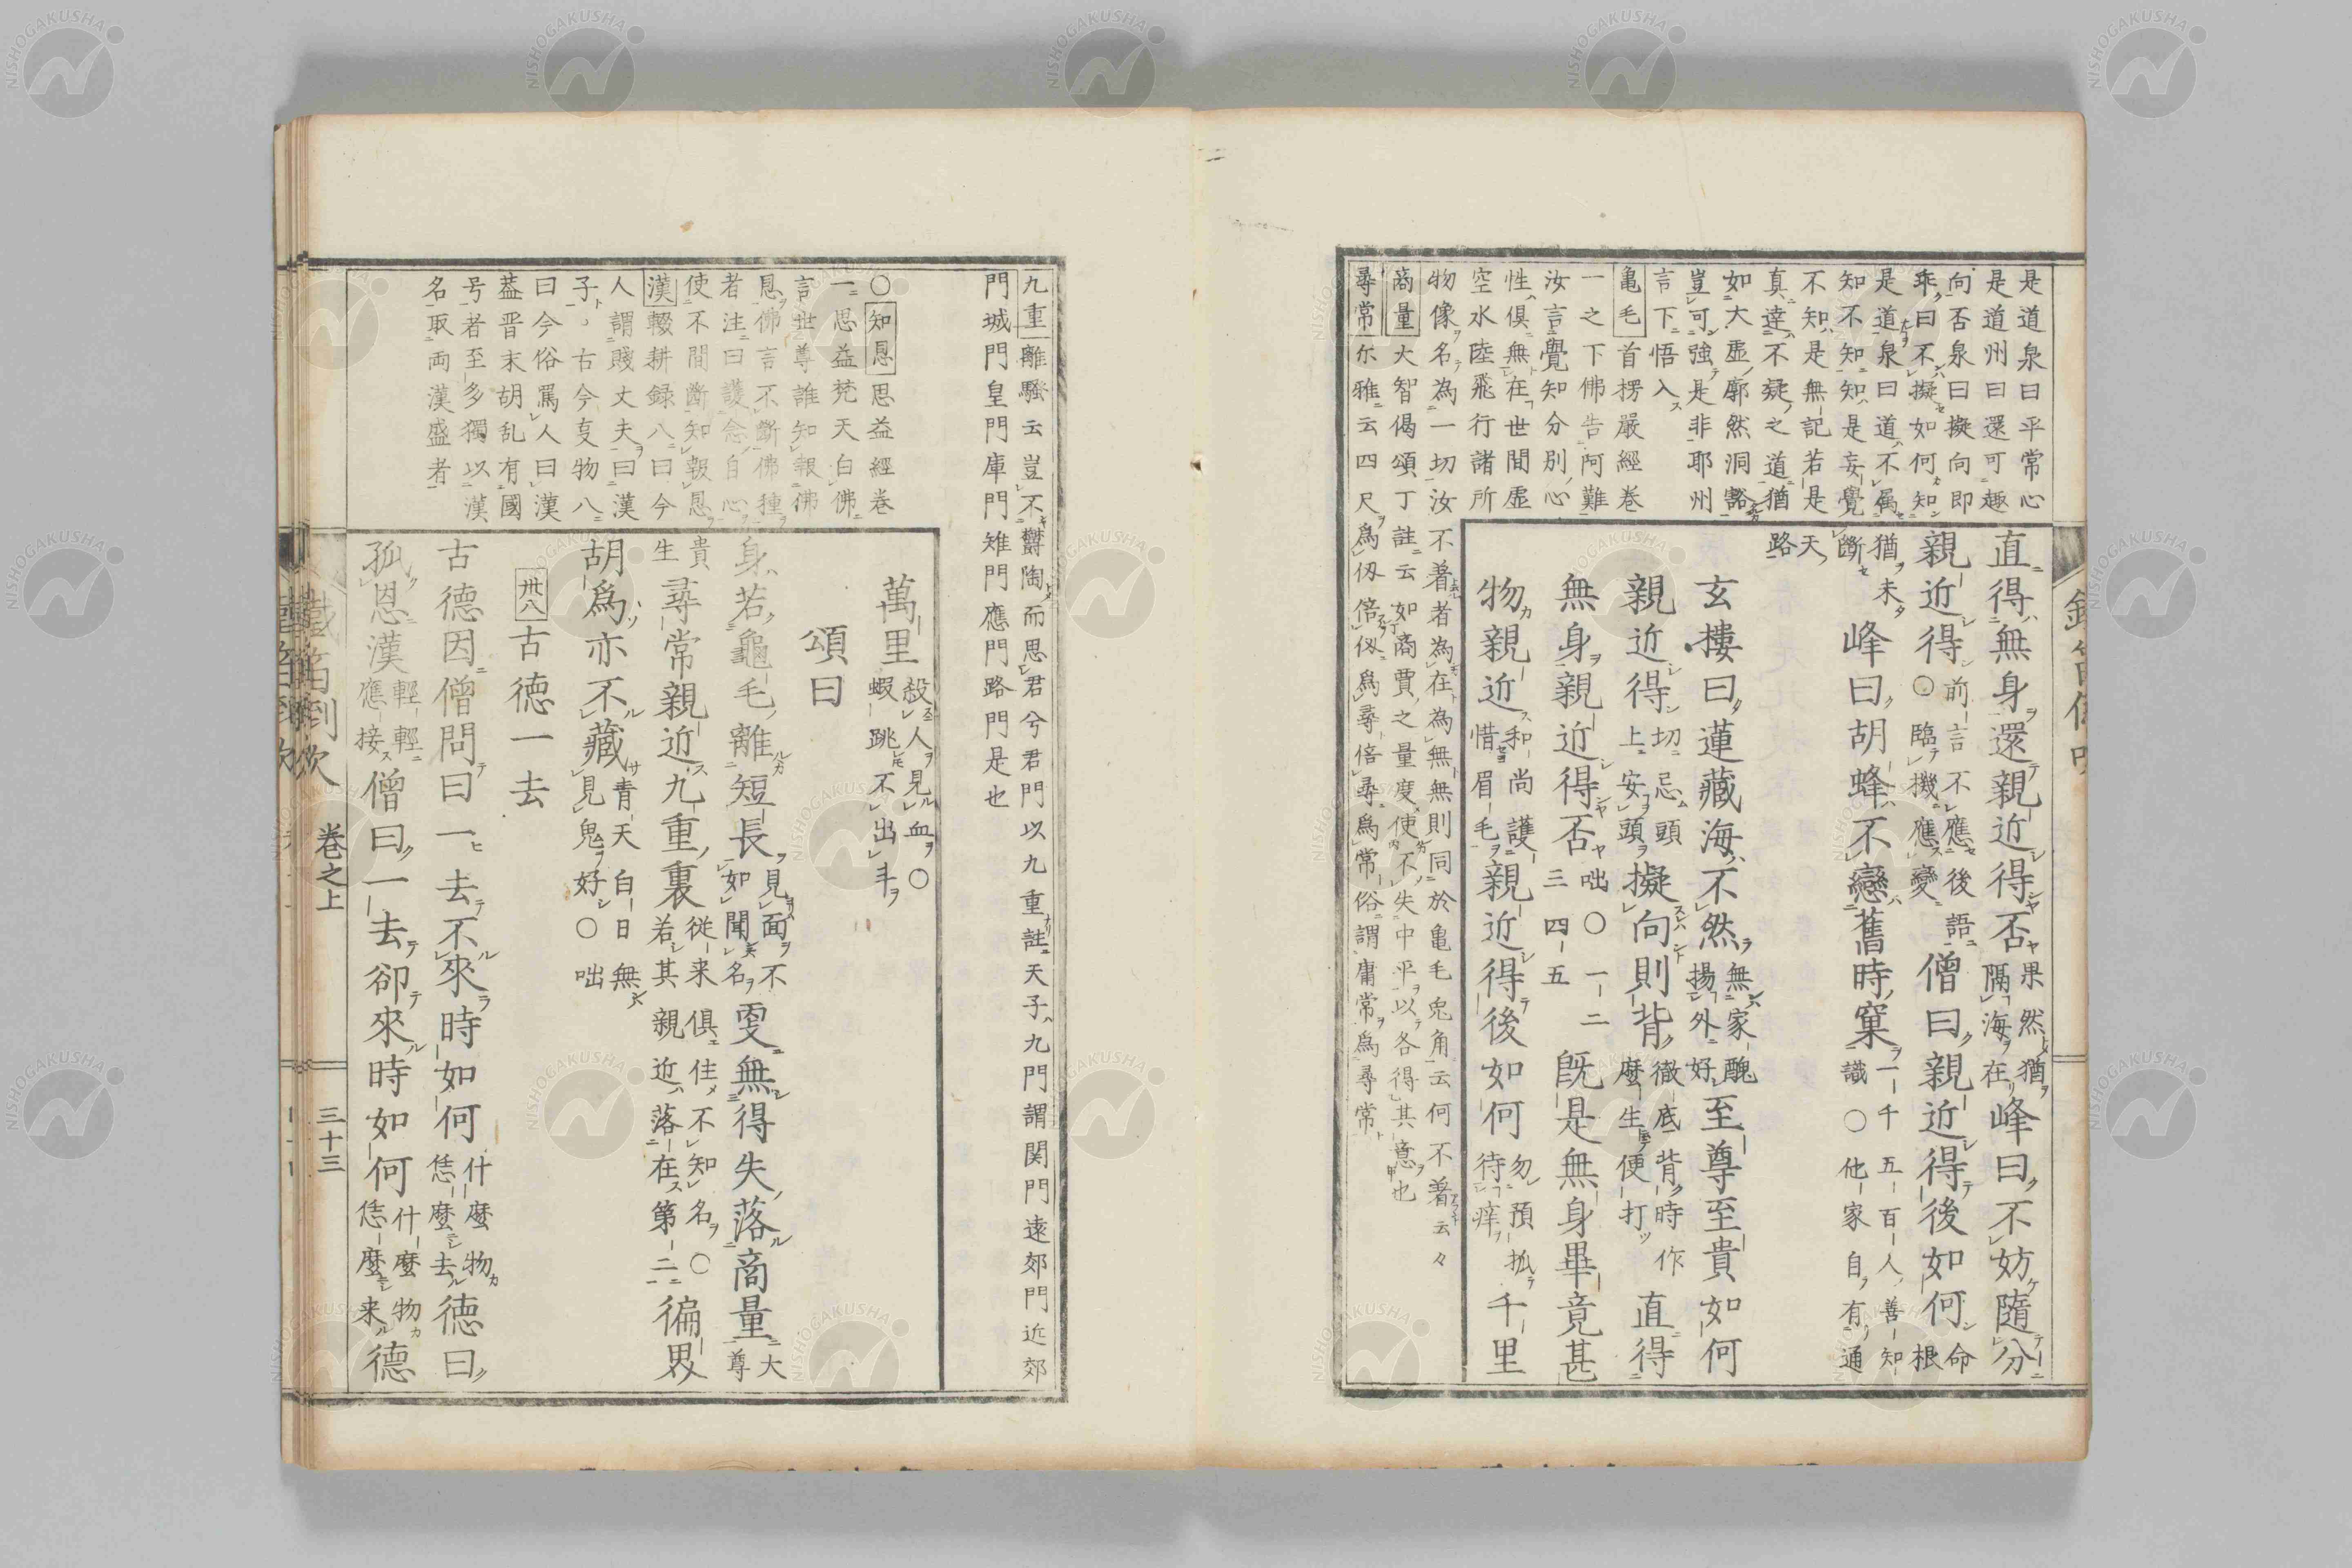 是道泉曰平常心
是道州曰還可趣
向否泉曰擬向即
乖曰不擬如何知
是道泉曰道不属
知不知知是妄覺
不知是無記若是
真達不疑之道猶
如大虚廓然洞豁
豈可強是非耶州
言下悟入
亀毛首楞嚴經巻
一之下佛告阿難
汝言覺知分別心
性俱無在世間虚
空水陸飛行諸所
物像名為一切汝不著者為在為無無則同於亀毛兎角云何不著云々
商量大智偈頌丁註云如商賈之量度使不失中平以各得其意也
尋常尓雅云四尺爲仭倍仭爲尋倍尋爲常俗謂庸常爲尋常
直得無身還親近得否果然猶隔海在峰曰不妨隨分
親近得〇前言不應後語臨機應變僧曰親近得後如何命根
猶未斷峰曰胡蜂不戀舊時窠一千五百人善知識〇他家自有通
天路
玄樓曰蓮藏海不然無家醜揚外好至尊至貴如何
親近得切忌頭上安頭擬向則背徹底背時作麼生便打直得
無身親近得否咄〇一二三四五既是無身畢竟甚
物親近和尚護惜眉毛親近得後如何勿預搔待痒千里
九重離騒云豈不欝陶而思君兮君門以九重註天子九門謂関門遠郊門近郊
門城門皇門庫門雉門應門路門是也
〇知恩思益經巻
一思益梵天白佛
言世尊誰知報佛
恩佛言不斷佛種
者注曰護念自心
使不間斷知報恩
漢輟耕録八曰今
人謂賤丈夫曰漢
子古今叓物八
曰今俗罵人曰漢
葢晋末胡乱有國
号者至多獨以漢
名取両漢盛者
萬里殺人見血〇蝦跳不出斗
頌曰
身若龜毛離短長見面不如聞名叓無得失落商量大尊
貴生尋常親近九重裏從来俱住不知名〇若其親近落在第二徧界
胡爲亦不藏青天白日無見鬼好〇咄
卅八古德一去
古德因僧問曰一去不來時如何什麼物恁麼去德曰
孤恩漢輕輕應接僧曰一去卻來時如何什麼物恁麼来德
巻之上
三十三